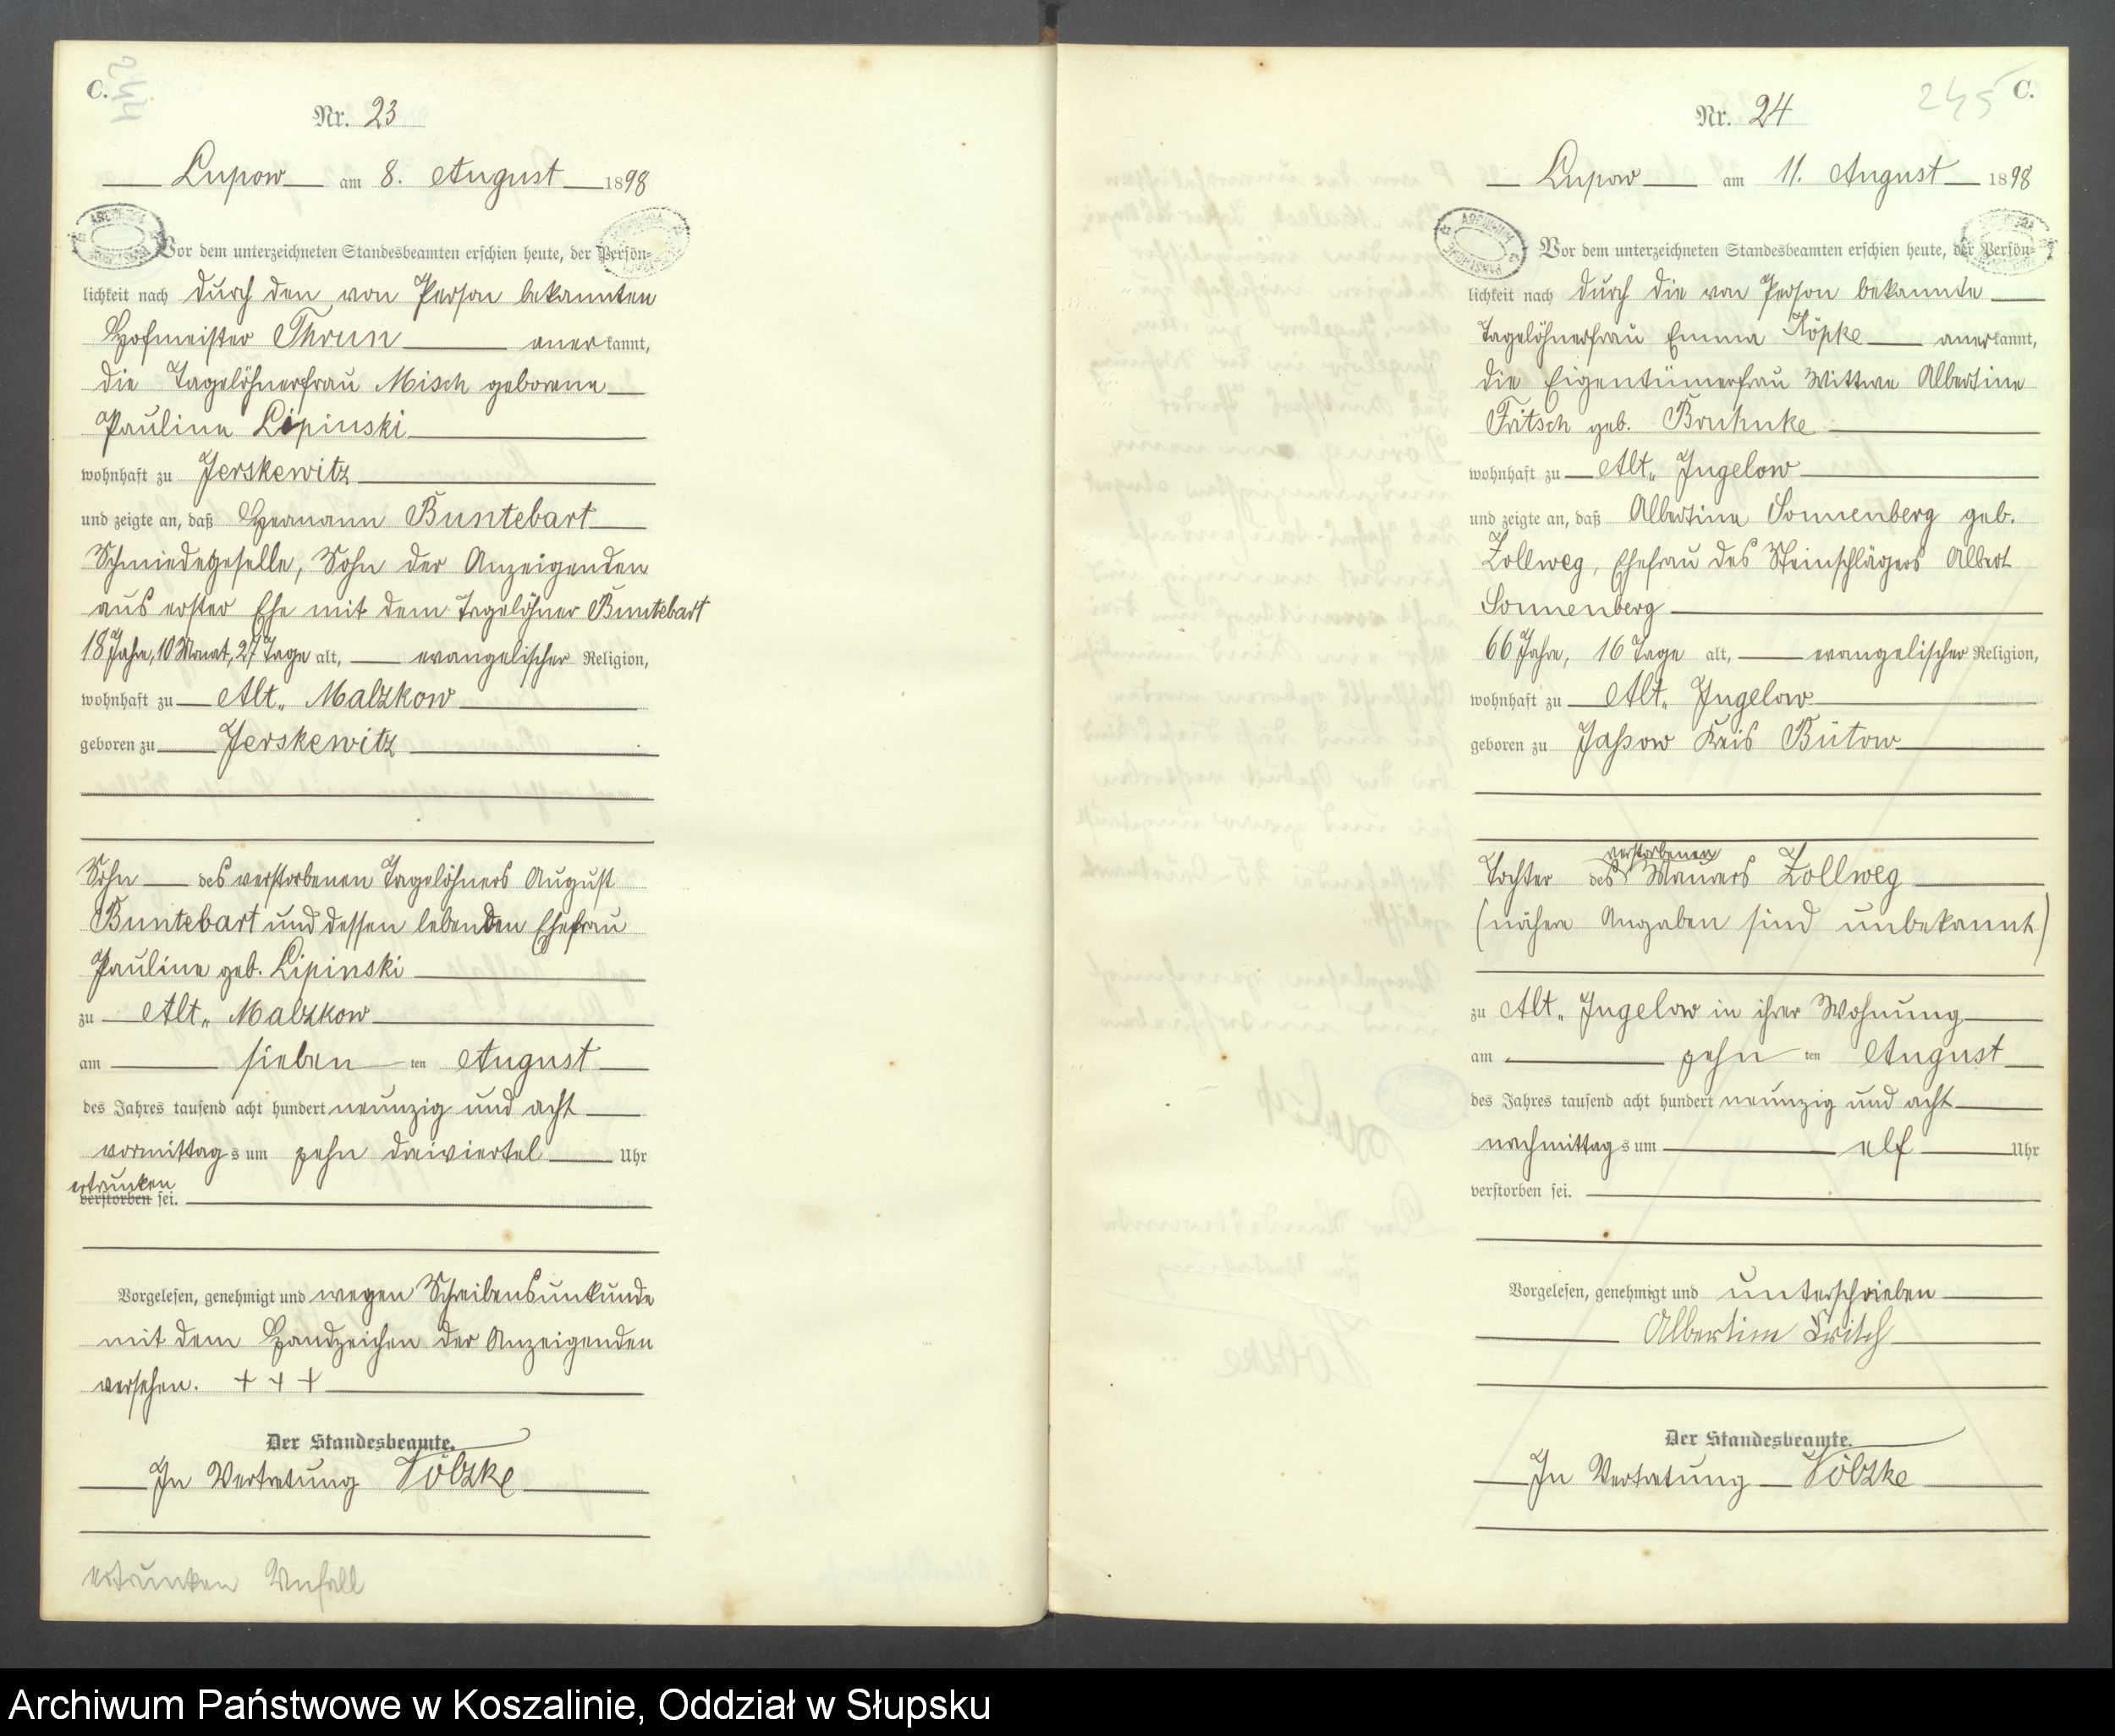 C.
244
Nr. 23
Lupow am 8. August 1898
Vor dem unterzeichneten Standesbeamten erschien heute, der Persön-
lichkeit nach durch den von Person bekannten
Hofmeister Thrun anerkannt,
die Tagelöhnerfrau Misch geborene
Pauline Lipinski
wohnhaft zu Jerskewitz
und zeigte an, daß Hermann Buntebart
Schmiedegeselle, Sohn der Anzeigenden
aus erster Ehe mit dem Tagelöhner Buntebart
18 Jahre, 10 Monat, 27 Tage alt, evangelischer Religion,
wohnhaft zu Alt„ Malzkow
geboren zu Jerskewitz
Sohn des verstorbenen Tagelöhners August
Buntebart und dessen lebenden Ehefrau
Pauline geb. Lipinski
zu Alt„ Malzkow
am sieben ten August
des Jahres tausend acht hundert neunzig und acht
vormittags um zehn dreiviertel Uhr
ertrunken
verstorben sei.
Vorgelesen, genehmigt und wegen Schreibensunkunde
mit dem Handzeichen der Anzeigenden
versehen. + + +
Der Standesbeamte.
In Vertretung Völzke
ertrunken Unfall
245
C.
Nr. 24
Lupow am 11. August 1898
Vor dem unterzeichneten Standesbeamten erschien heute, der Persön-
lichkeit nach durch die von Person bekannte
Tagelöhnerfrau Emma Köpke anerkannt,
die Eigentümerfrau Wittwe Albertine
Fritsch geb. Bruhnke
wohnhaft zu Alt„ Jugelow
und zeigte an, daß Albertine Sonnenberg geb.
Zollweg, Ehefrau des Steinschlägers Albert
Sonnenberg
66 Jahre, 16 Tage alt, evangelischer Religion,
wohnhaft zu Alt„ Jugelow
geboren zu Jaßow Kreis Bütow
verstorbenen
Tochter des Maurers Zollweg
(nähere Angaben sind unbekannt)
zu Alt„ Jugelow in ihrer Wohnung
am zehn ten August
des Jahres tausend acht hundert neunzig und acht
nachmittags um elf Uhr
verstorben sei.
Vorgelesen, genehmigt und unterschrieben
Albertine Fritsch
Der Standesbeamte.
In Vertretung Völzke
Archiwum Państwowe w Koszalinie, Oddział w Słupsku